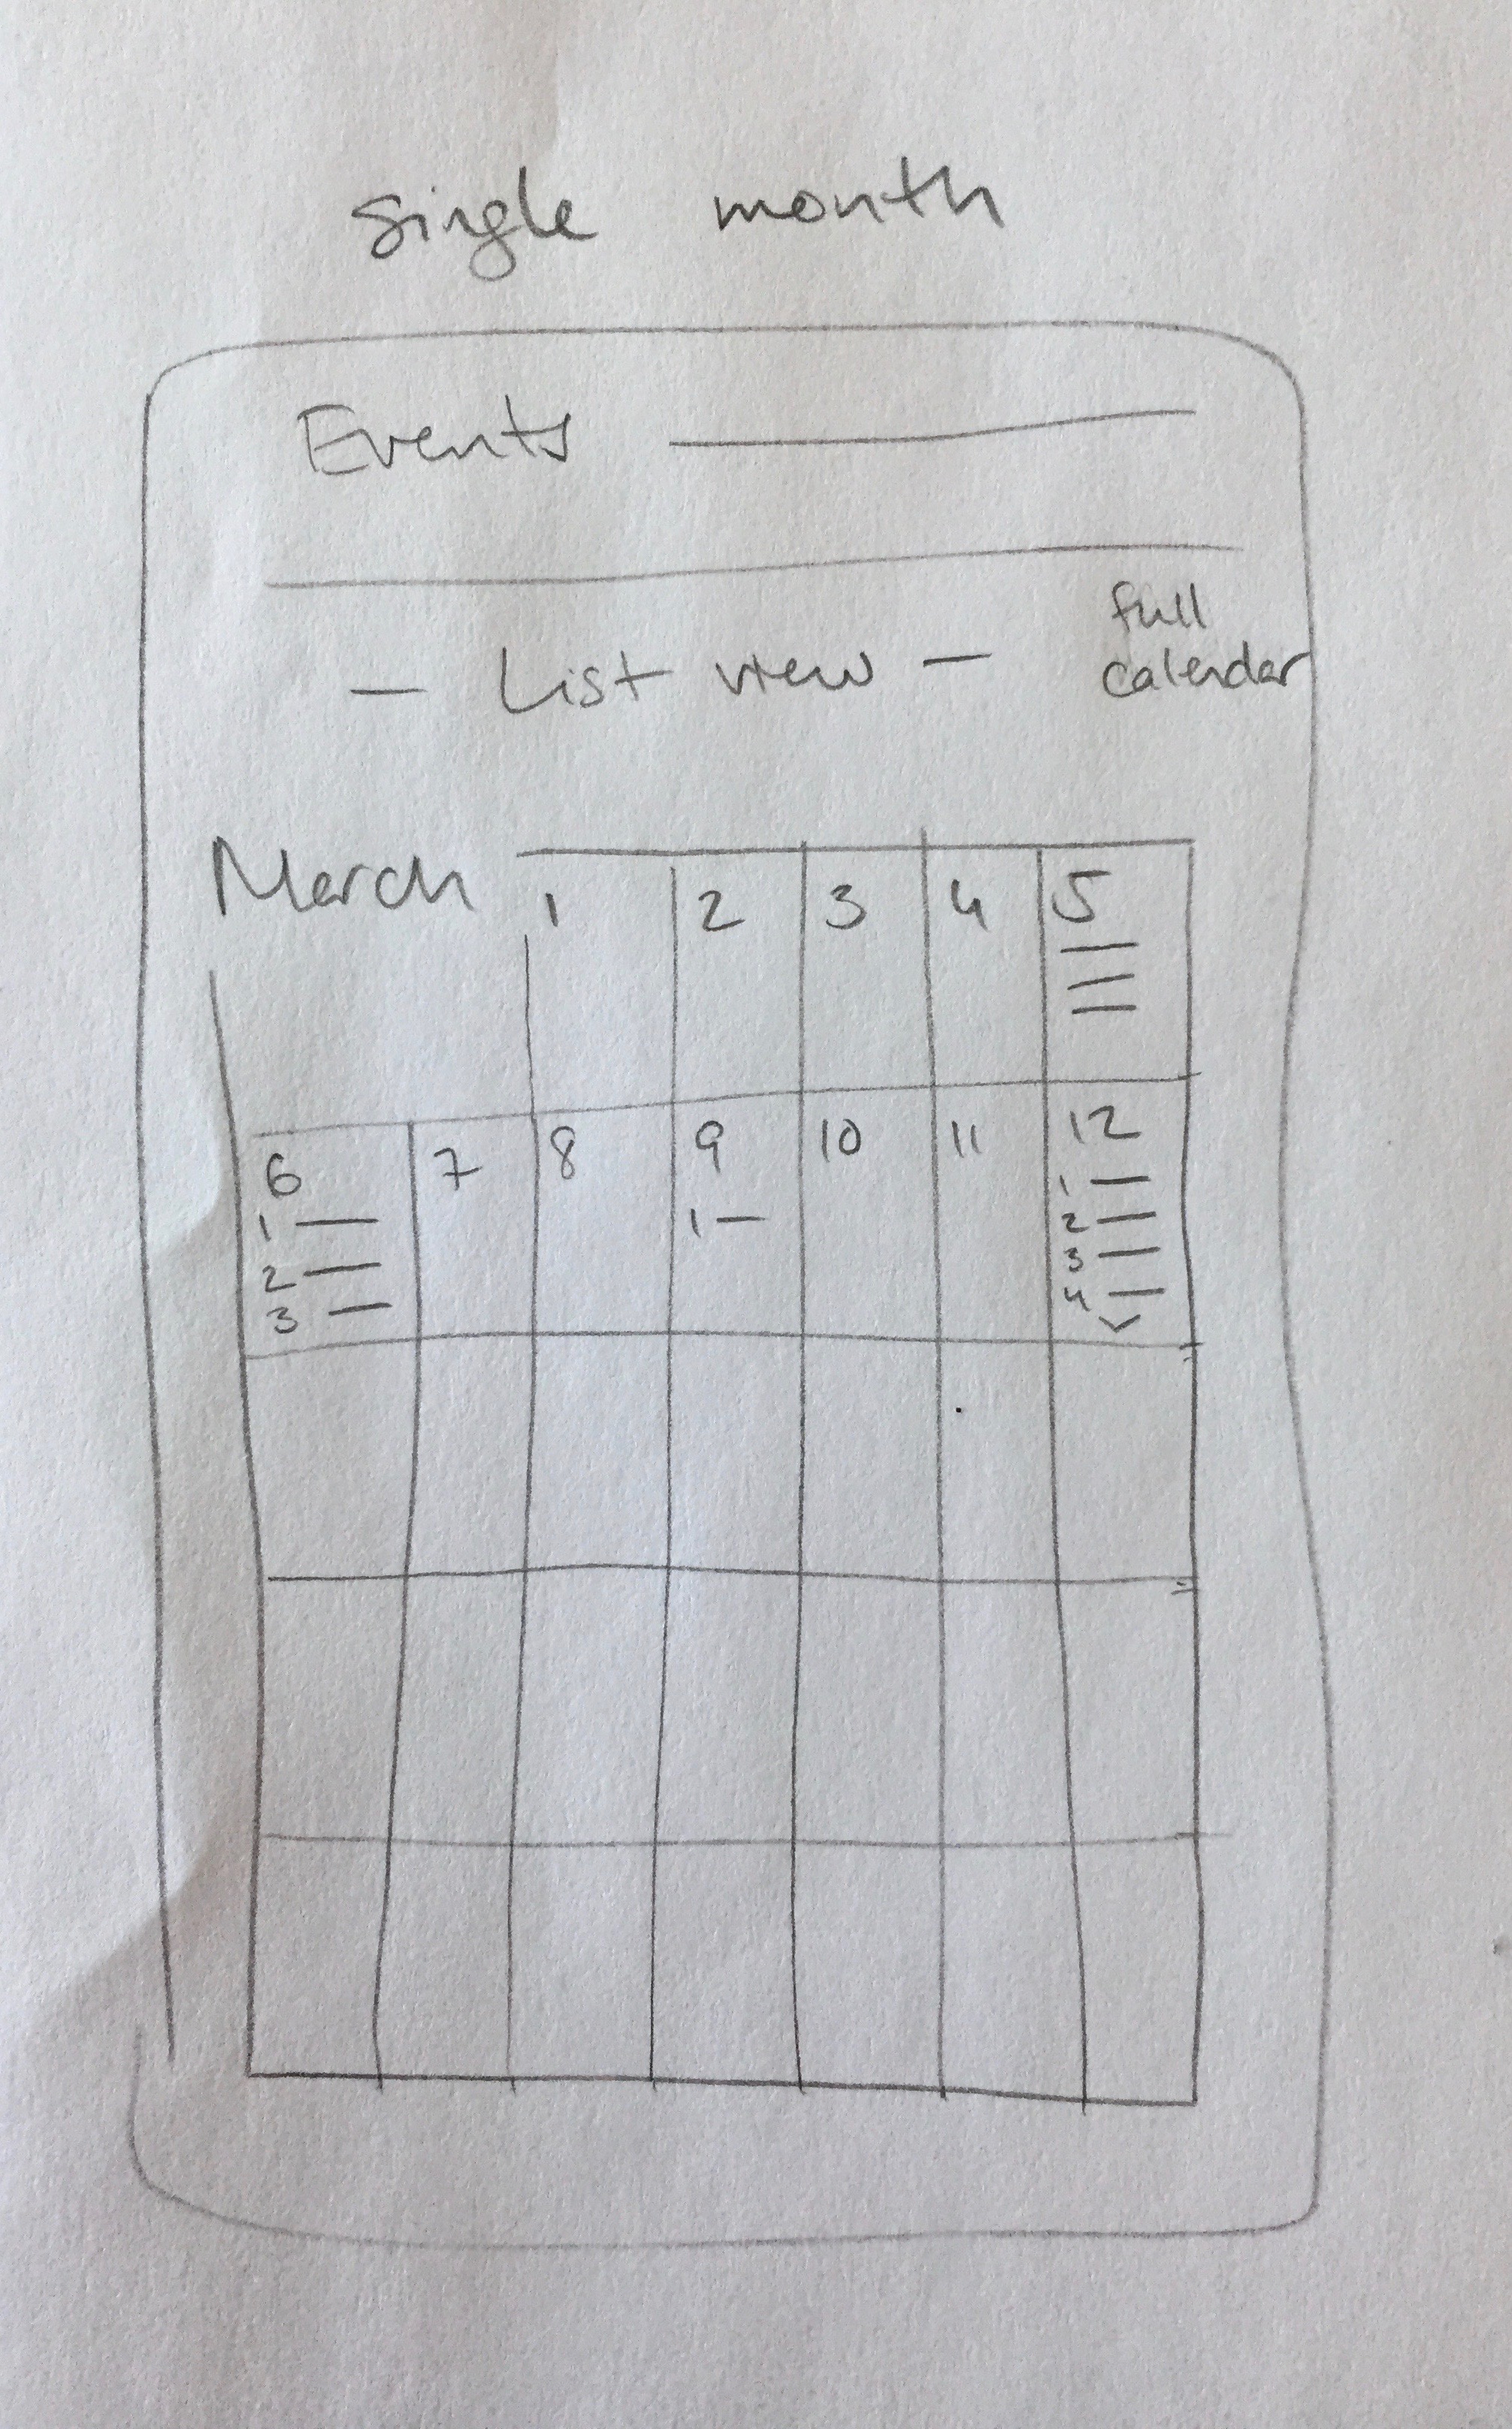 single month
Events
- List view - full calendar
March 1 2 3 4 5
6 7 8 9 10 11 12
1 - 1 - 1 -
2 - 2 -
3 - 3 -
4 -